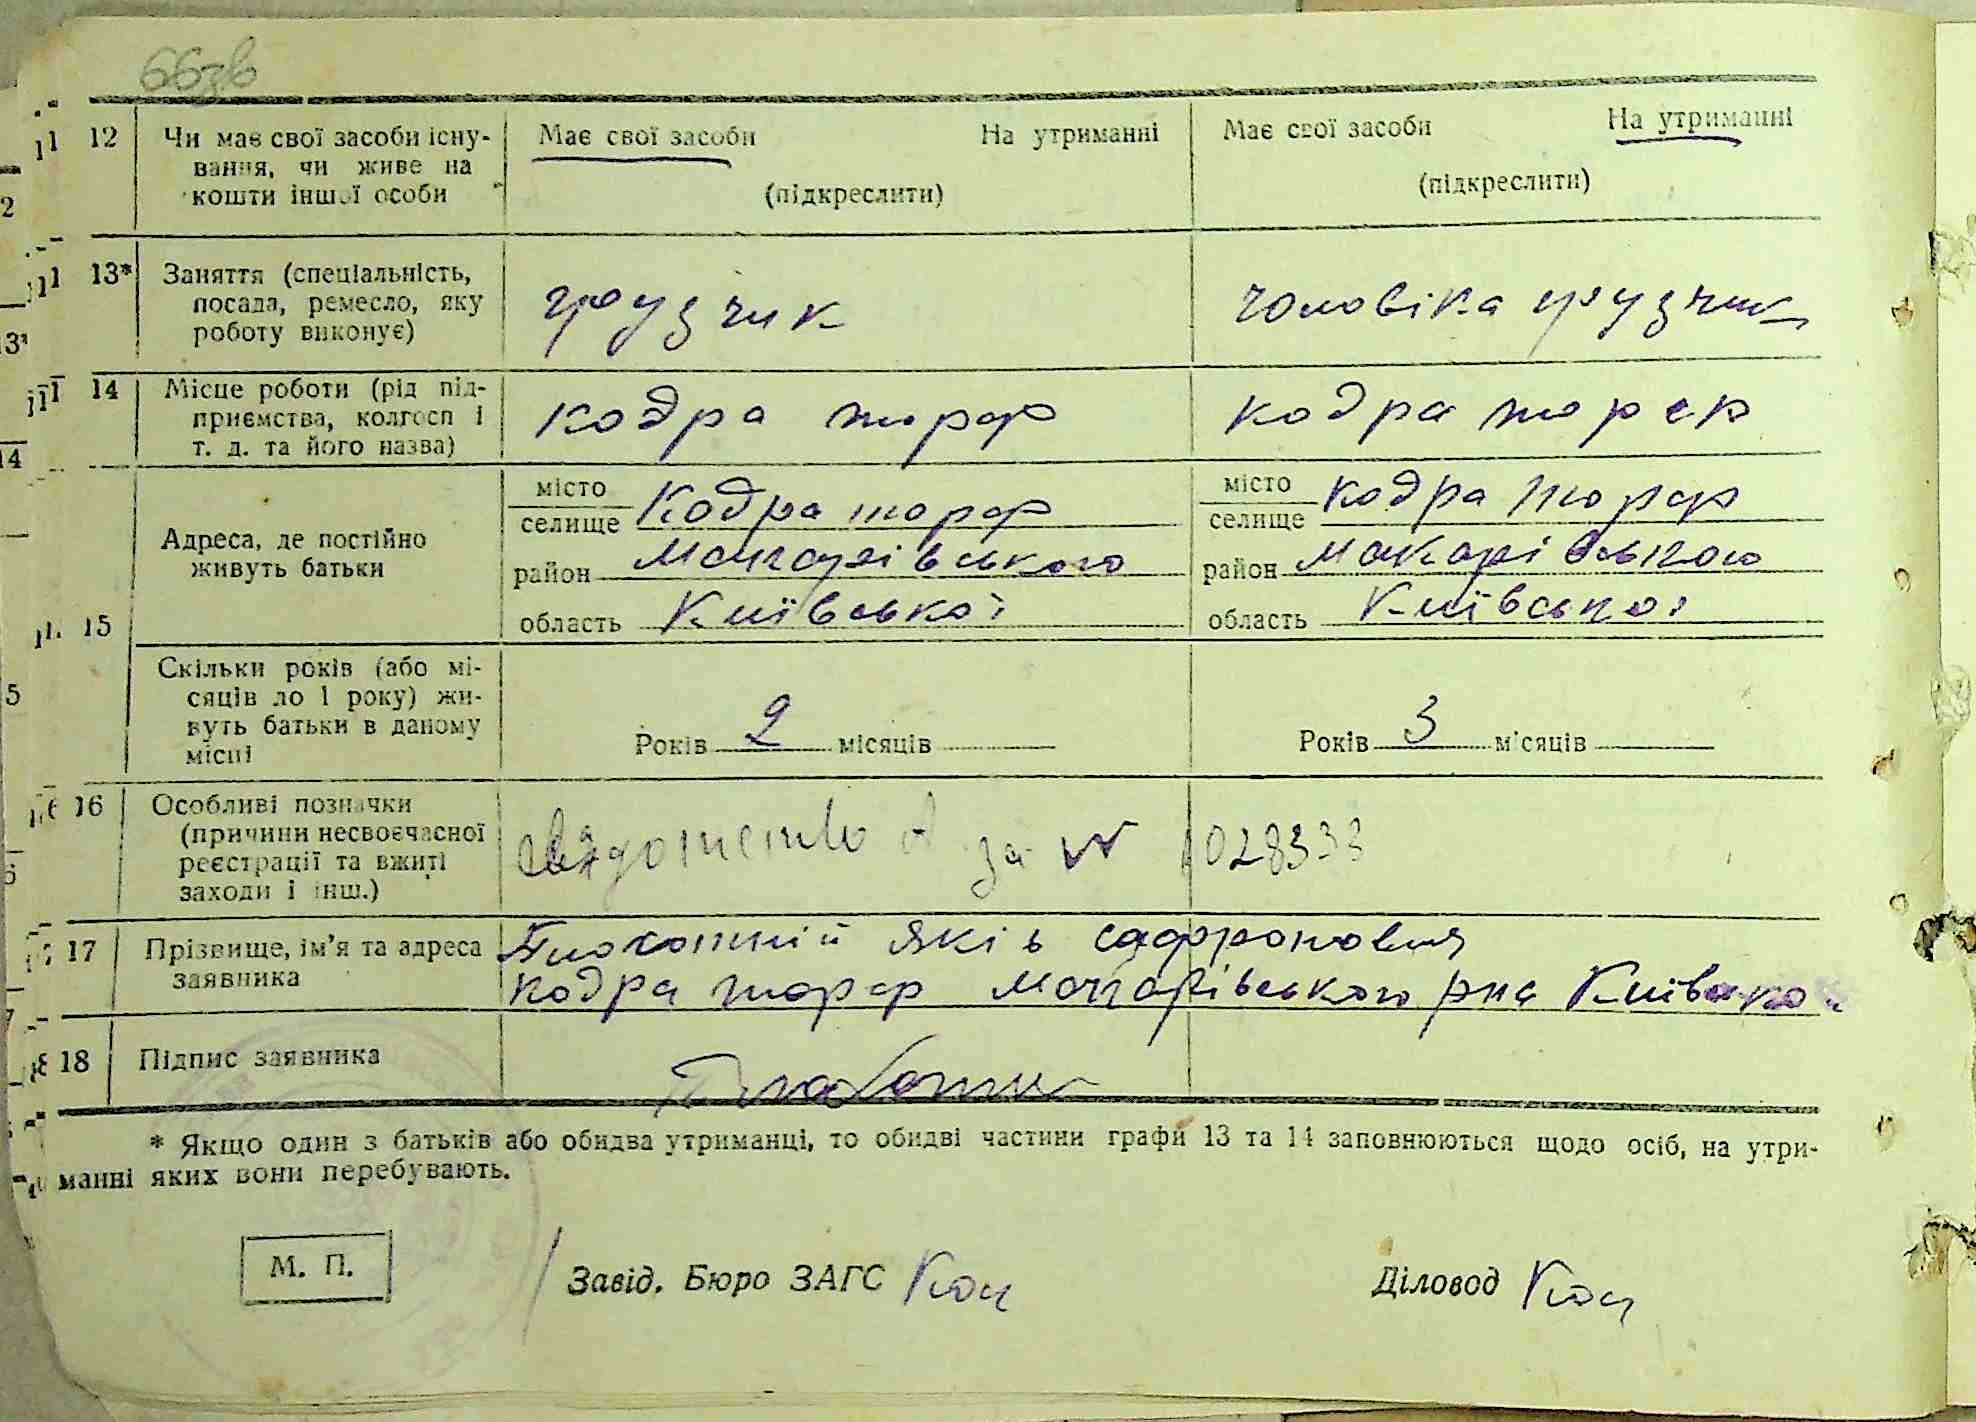 66зв
12 Чи має свої засоби існу-
вання, чи живе на
кошти іншої особи
Має свої засоби На утриманні
(підкреслити)
Має свої засоби На утриманні
(підкреслити)
13* Заняття (спеціальність,
посада, ремесло, яку
роботу виконує)
грузчик
чоловіка грузчик
14 Місце роботи (рід під-
приємства, колгосп і
т. д. та його назва)
кодра торф
кодра торф
15 Адреса, де постійно
живуть батьки
місто
селище Кодра торф
район Макарівського
область Київської
місто
селище кодра торф
район Макарівського
область Київської
Скільки років (або мі-
сяців до 1 року) жи-
вуть батьки в даному
місці
Років 2 місяців
Років 3 місяців
16 Особливі позначки
(причини несвоєчасної
реєстрації та вжиті
заходи і інш.)
за № 028333
17 Прізвище, ім'я та адреса
заявника
Плохотній Яків Сафронович
кодра торф Макарівського рна
18 Підпис заявника
* Якщо один з батьків або обидва утриманці, то обидві частини графи 13 та 14 заповнюються щодо осіб, на утри-
манні яких вони перебувають.
М. П.
Завід. Бюро ЗАГС
Діловод